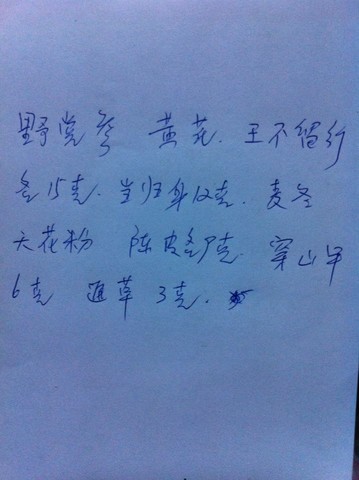 野党参 黄芪. 王不留行
各15克. 当归身12克. 麦冬
天花粉 陈皮各9克. 穿山甲
6克 通草 3克.